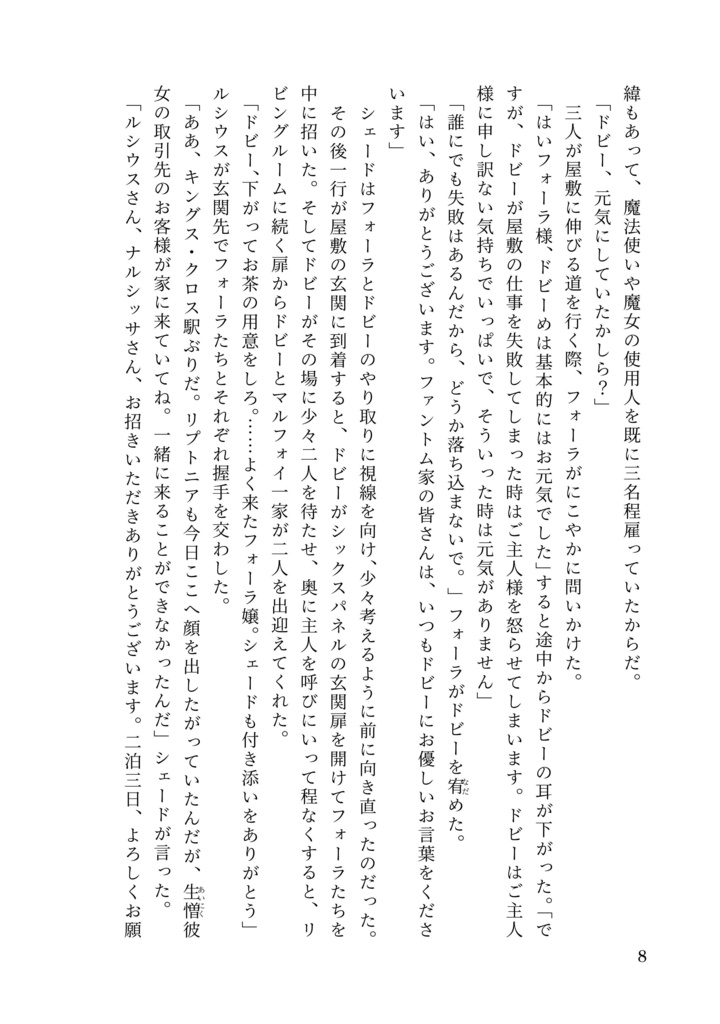 緯もあって、魔法使いや魔女の使用人を既に三名程雇っていたからだ。
「ドビー、元気にしていたかしら？」
三人が屋敷に伸びる道を行く際、フォーラがにこやかに問いかけた。
「はいフォーラ様、ドビーめは基本的にはお元気でした」すると途中からドビーの耳が下がった。「で
すが、ドビーが屋敷の仕事を失敗してしまった時はご主人様を怒らせてしまいます。ドビーはご主人
様に申し訳ない気持ちでいっぱいで、そういった時は元気がありません」
「誰にでも失敗はあるんだから、どうか落ち込まないで。」フォーラがドビーを宥なだめた。
「はい、ありがとうございます。ファントム家の皆さんは、いつもドビーにお優しいお言葉をくださ
います」
シェードはフォーラとドビーのやり取りに視線を向け、少々考えるように前に向き直ったのだった。
その後一行が屋敷の玄関に到着すると、ドビーがシックスパネルの玄関扉を開けてフォーラたちを
中に招いた。そしてドビーがその場に少々二人を待たせ、奥に主人を呼びにいって程なくすると、リ
ビングルームに続く扉からドビーとマルフォイ一家が二人を出迎えてくれた。
「ドビー、下がってお茶の用意をしろ。……よく来たフォーラ嬢。シェードも付き添いをありがとう」
ルシウスが玄関先でフォーラたちとそれぞれ握手を交わした。
「ああ、キングス・クロス駅ぶりだ。リプトニアも今日ここへ顔を出したがっていたんだが、生憎あいにく彼
女の取引先のお客様が家に来ていてね。一緒に来ることができなかったんだ」シェードが言った。
「ルシウスさん、ナルシッサさん、お招きいただきありがとうございます。二泊三日、よろしくお願
8